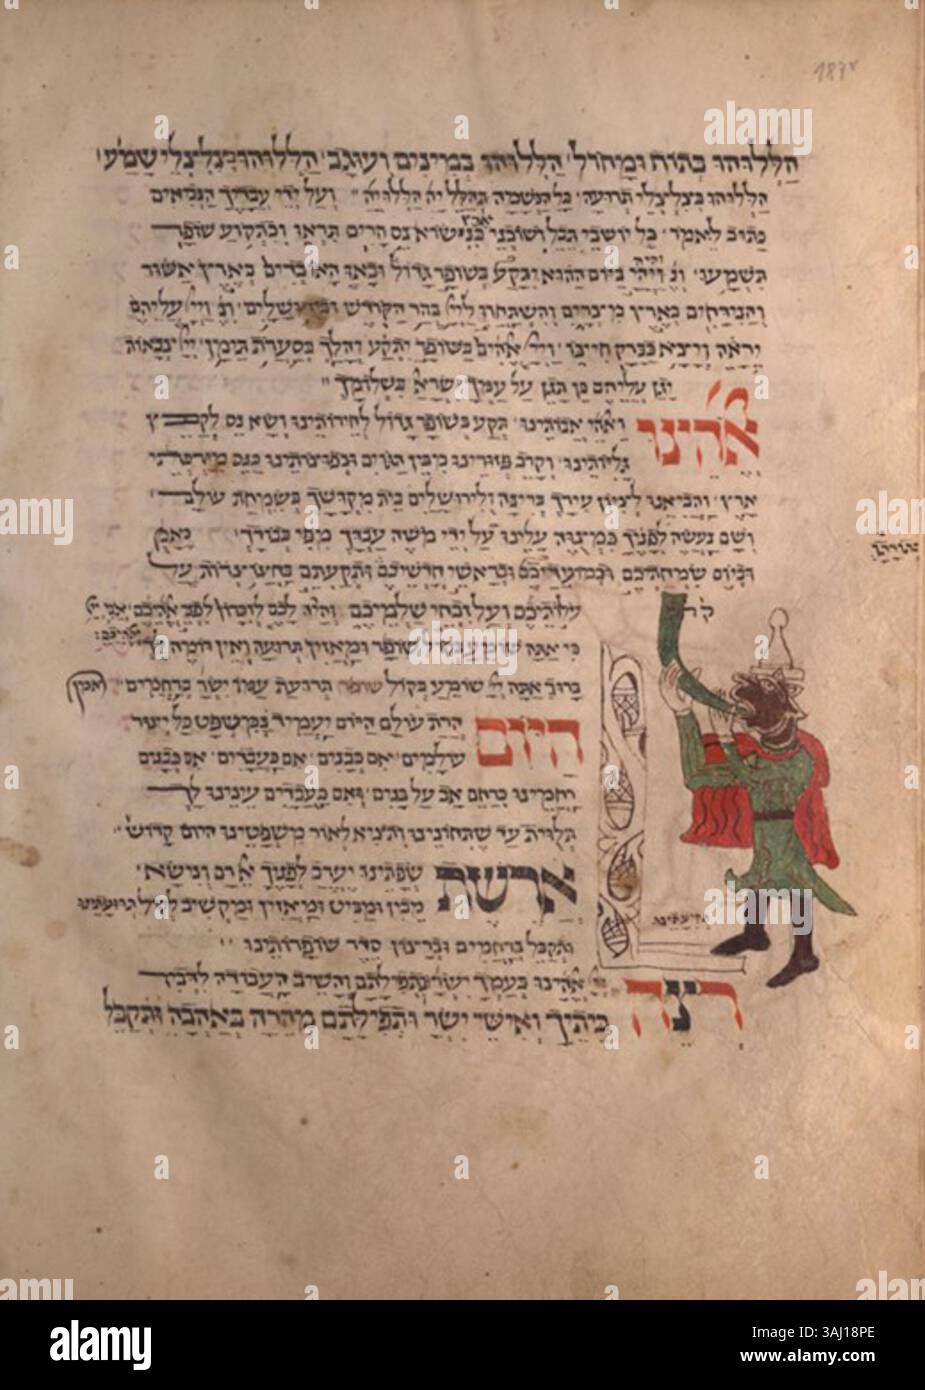 הַלְלוּהוּ בְתוֹף וּמָחוֹל׳ הַלְלוּהוּ בְּמִינִים וְעוּגָב׳ הַלְלוּהוּ בְּצִלְצְלֵי שָׁמַע׳
הַלְלוּהוּ בְּצִלְצְלֵי תְרוּעָה׳ כָּל הַנְּשָׁמָה תְּהַלֵּל יָהּ הַלְלוּיָהּ׳׳ וְעַל יְדֵי עֲבָדֶיךָ הַנְּבִיאִים
כָּתוּב לֵאמֹר׳ כָּל יוֹשְׁבֵי תֵבֵל וְשׁוֹכְנֵי אָרֶץ כִּנְשׂוֹא נֵס הָרִים תִּרְאוּ וְכִתְקוֹעַ שׁוֹפָר
תִּשְׁמָעוּ׳ וְנֶ׳ וְהָיָה בַּיּוֹם הַהוּא יִתָּקַע בְּשׁוֹפָר גָּדוֹל וּבָאוּ הָאוֹבְדִים בְּאֶרֶץ אַשּׁוּר
וְהַנִּדָּחִים בְּאֶרֶץ מִצְרַיִם וְהִשְׁתַּחֲווּ לַייָ׳ בְּהַר הַקּוֹדֶשׁ וּבִירוּשָׁלַיִם׳ וְנֶ׳ וַייָ׳ עֲלֵיהֶם
יֵרָאֶה וְיָצָא כַבָּרָק חִיצּוֹ׳ וַייָ׳ אֱלֹהִים בַּשּׁוֹפָר יִתְקַע וְהָלַךְ בְּסַעֲרוֹת תֵּימָן׳ ייָ׳ צְבָאוֹת
יָגֵן עֲלֵיהֶם כֵּן תָּגֵן עַל עַמְּךָ יִשְׂרָא׳ בִּשְׁלוֹמֶךָ׳׳
אֱהֵינוּ וֵאלֹהֵי אֲבוֹתֵינוּ׳ תְּקַע בְּשׁוֹפָר גָּדוֹל לְחֵירוּתֵינוּ וְשָׂא נֵס לְקַבֵּץ
גָּלִיּוֹתֵינוּ׳ וְקָרֵב פְּזוּרֵינוּ מִבֵּין הַגּוֹיִם וּנְפוּצוֹתֵינוּ כַּנֵּס מִיַּרְכְּתֵי
אָרֶץ׳ וַהֲבִיאֵנוּ לְצִיּוֹן עִירְךָ בְּרִינָה וְלִירוּשָׁלַיִם בֵּית מִקְדָּשְׁךָ בְּשִׂמְחַת עוֹלָם׳
וְשָׁם נַעֲשֶׂה לְפָנֶיךָ כְּמִצְוָה עָלֵינוּ עַל יְדֵי מֹשֶׁה עַבְדֶּךָ מִפִּי כְבוֹדֶךָ׳ כָּאָמוּר
בתורתך
וּבְיוֹם שִׂמְחַתְכֶם וּבְמוֹעֲדֵיכֶם וּבְרָאשֵׁי חָדְשֵׁיכֶם וּתְקַעְתֶּם בַּחֲצוֹצְרוֹת עַל
עוֹלוֹתֵיכֶם וְעַל זִבְחֵי שַׁלְמֵיכֶם וְהָיוּ לָכֶם לְזִכָּרוֹן לִפְנֵי אֱלֹהֵיכֶם אֲנִי ייָ׳
אלהיכם׃
כִּי אַתָּה שׁוֹמֵעַ קוֹל שׁוֹפָר וּמַאֲזִין תְּרוּעָה וְאֵין דּוֹמֶה לָךְ׳
בָּרוּךְ אַתָּה ייָ׳ שׁוֹמֵעַ בְּקוֹל שׁוֹפָר תְּרוּעַת עַמּוֹ יִשְׂרָ׳ בְּרַחֲמִים׳׳ אמן
הַיּוֹם הֲרַת עוֹלָם הַיּוֹם יַעֲמִיד בַּמִּשְׁפָּט כָּל יְצוּר
עוֹלָמִים׳ אִם כְּבָנִים׳ אִם כַּעֲבָדִים׳ אִם כְּבָנִים
רַחֲמֵינוּ כְּרַחֵם אָב עַל בָּנִים׳ וְאִם כַּעֲבָדִים עֵינֵינוּ לָךְ
תְּלוּיוֹת עַד שֶׁתְּחוֹנֵינוּ וְתוֹצִיא לָאוֹר מִשְׁפָּטֵינוּ הַיּוֹם קָדוֹשׁ׳׳
אֲרֶשֶׁת שְׂפָתֵינוּ יֶעֱרַב לְפָנֶיךָ אֵל רָם וְנִישָּׂא׳
מֵבִין וּמַבִּיט וּמַאֲזִין וּמַקְשִׁיב לְקוֹל תרועתינו
וּתְקַבֵּל בְּרַחֲמִים וּבְרָצוֹן סֵדֶר שׁוֹפְרוֹתֵינוּ׳׳
רְצֵה ייָ׳ אֱלֹהֵינוּ בְּעַמְּךָ יִשְׂרָ׳ וּבִתְפִילָתָם וְהָשֵׁיב הָעֲבוֹדָה לִדְבִיר
בֵּיתֶיךָ וְאִישֵּׁי יִשְׂרָ׳ וּתְפִילָּתָם מְהֵרָה בְּאַהֲבָה תְּקַבֵּל
alamy
Image ID: 3AJ18PE
www.alamy.com